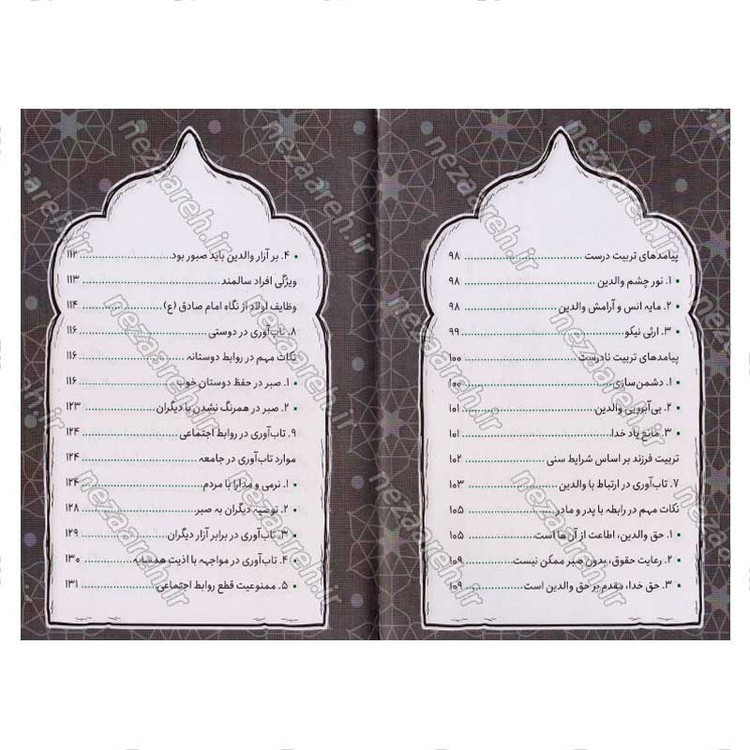 پیامدهای تربیت درست ........ ۹۸
• ۱. نور چشم والدین ........ ۹۸
• ۲. مایه انس و آرامش والدین ........ ۹۸
• ۳. ارثی نیکو ........ ۹۹
پیامدهای تربیت نادرست ........ ۱۰۰
• ۱. دشمن‌سازی ........ ۱۰۰
• ۲. بی‌آبرویی والدین ........ ۱۰۱
• ۳. مانع یاد خدا ........ ۱۰۱
تربیت فرزند بر اساس شرایط سنی ........ ۱۰۲
۷. تاب‌آوری در ارتباط با والدین ........ ۱۰۳
نکات مهم در رابطه با پدر و مادر ........ ۱۰۵
• ۱. حق والدین، اطاعت از آن‌ها است ........ ۱۰۵
• ۲. رعایت حقوق، بدون صبر ممکن نیست ........ ۱۰۹
• ۳. حق خدا، مقدم بر حق والدین است ........ ۱۰۹
• ۴. بر آزار والدین باید صبور بود ........ ۱۱۲
ویژگی افراد سالمند ........ ۱۱۳
وظایف اولاد از نگاه امام صادق (ع) ........ ۱۱۴
۸. تاب‌آوری در دوستی ........ ۱۱۶
نکات مهم در روابط دوستانه ........ ۱۱۶
• ۱. صبر در حفظ دوستان خوب ........ ۱۱۶
• ۲. صبر در همرنگ نشدن با دیگران ........ ۱۲۳
۹. تاب‌آوری در روابط اجتماعی ........ ۱۲۴
موارد تاب‌آوری در جامعه ........ ۱۲۴
• ۱. نرمی و مدارا با مردم ........ ۱۲۴
• ۲. توصیه دیگران به صبر ........ ۱۲۸
• ۳. تاب‌آوری در برابر آزار دیگران ........ ۱۲۹
• ۴. تاب‌آوری در مواجهه با اذیت همسایه ........ ۱۳۰
• ۵. ممنوعیت قطع روابط اجتماعی ........ ۱۳۱
nezaareh.ir